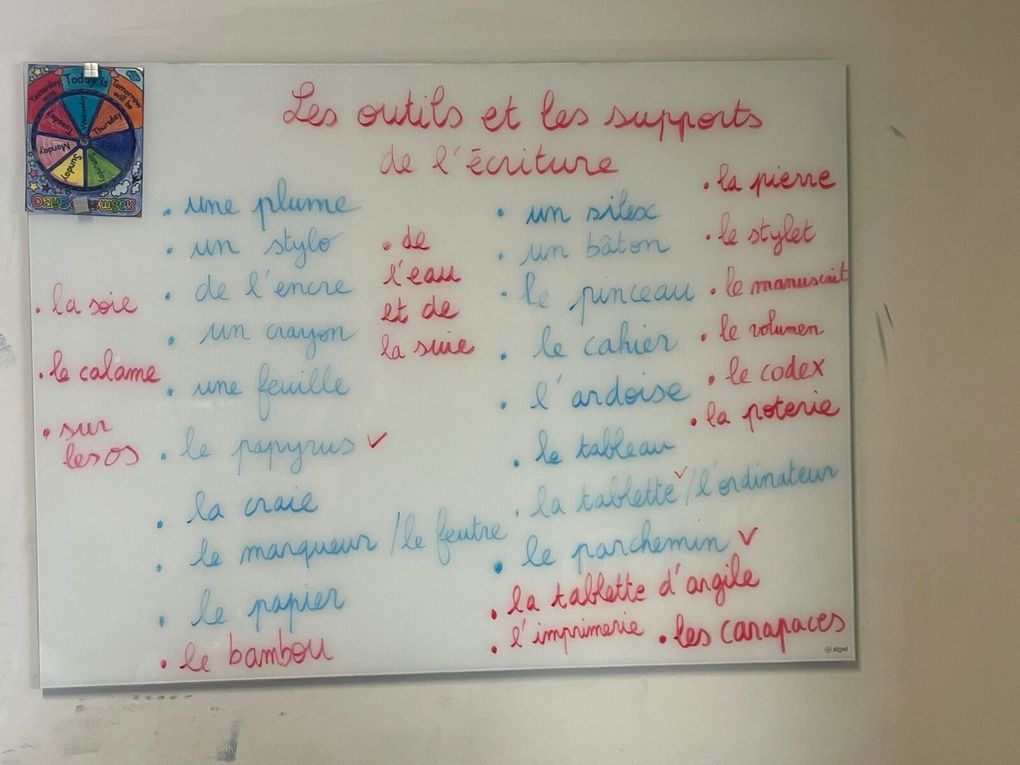 Yesterday was
Today is
Tomorrow will be
Tuesday
Wednesday
Thursday
Friday
Saturday
Sunday
Monday
Days week
Les outils et les supports
de l'écriture
• une plume
• un stylo
• de l'encre
• un crayon
• une feuille
• le papyrus ✓
• la craie
• le marqueur / le feutre
• le papier
• le bambou
• la soie
• le calame
• sur
les os
• de
l'eau
et de
la suie
• un silex
• un bâton
• le pinceau
• le cahier
• l'ardoise
• le tableau
• la tablette ✓ / l'ordinateur
• le parchemin ✓
• la tablette d'argile
• l'imprimerie
• les carapaces
• la pierre
• le stylet
• le manuscrit
• le volumen
• le codex
• la poterie
sigel